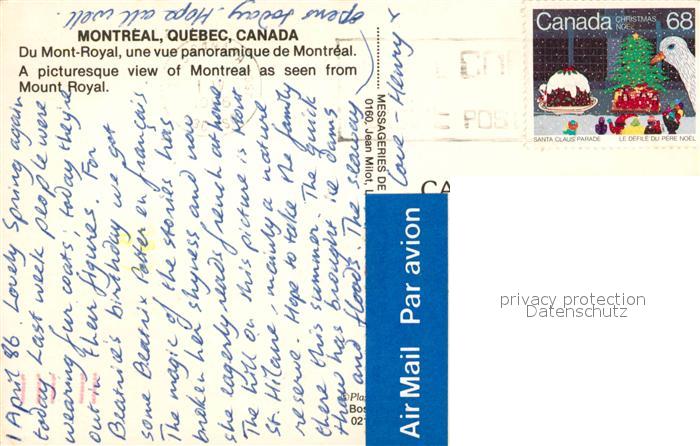 MONTRÉAL, QUÉBEC, CANADA
Du Mont-Royal, une vue panoramique de Montréal.
A picturesque view of Montreal as seen from
Mount Royal.
1 April 86. Lovely Spring again
today. Last week people were
wearing fur coats: today they're
out in their figures. For
Beatrice's birthday we got
some Beatrix Potter en français.
The magic of the stories has
broken her shyness and now
she eagerly reads french at home.
The hill on this picture is
St. Hilaire, mainly a nature
reserve. Hope to take the family
there this summer. The quick
thaw has brought ice dams
and floods. The seaway
opens today. Hope all well.
Love - Henry
MESSAGERIES DE
0160, Jean Milot, L
CA
Bos
021
Air Mail Par avion
Canada
CHRISTMAS
NOËL
68
SANTA CLAUS PARADE
LE DÉFILÉ DU PÈRE NOËL
privacy protection
Datenschutz